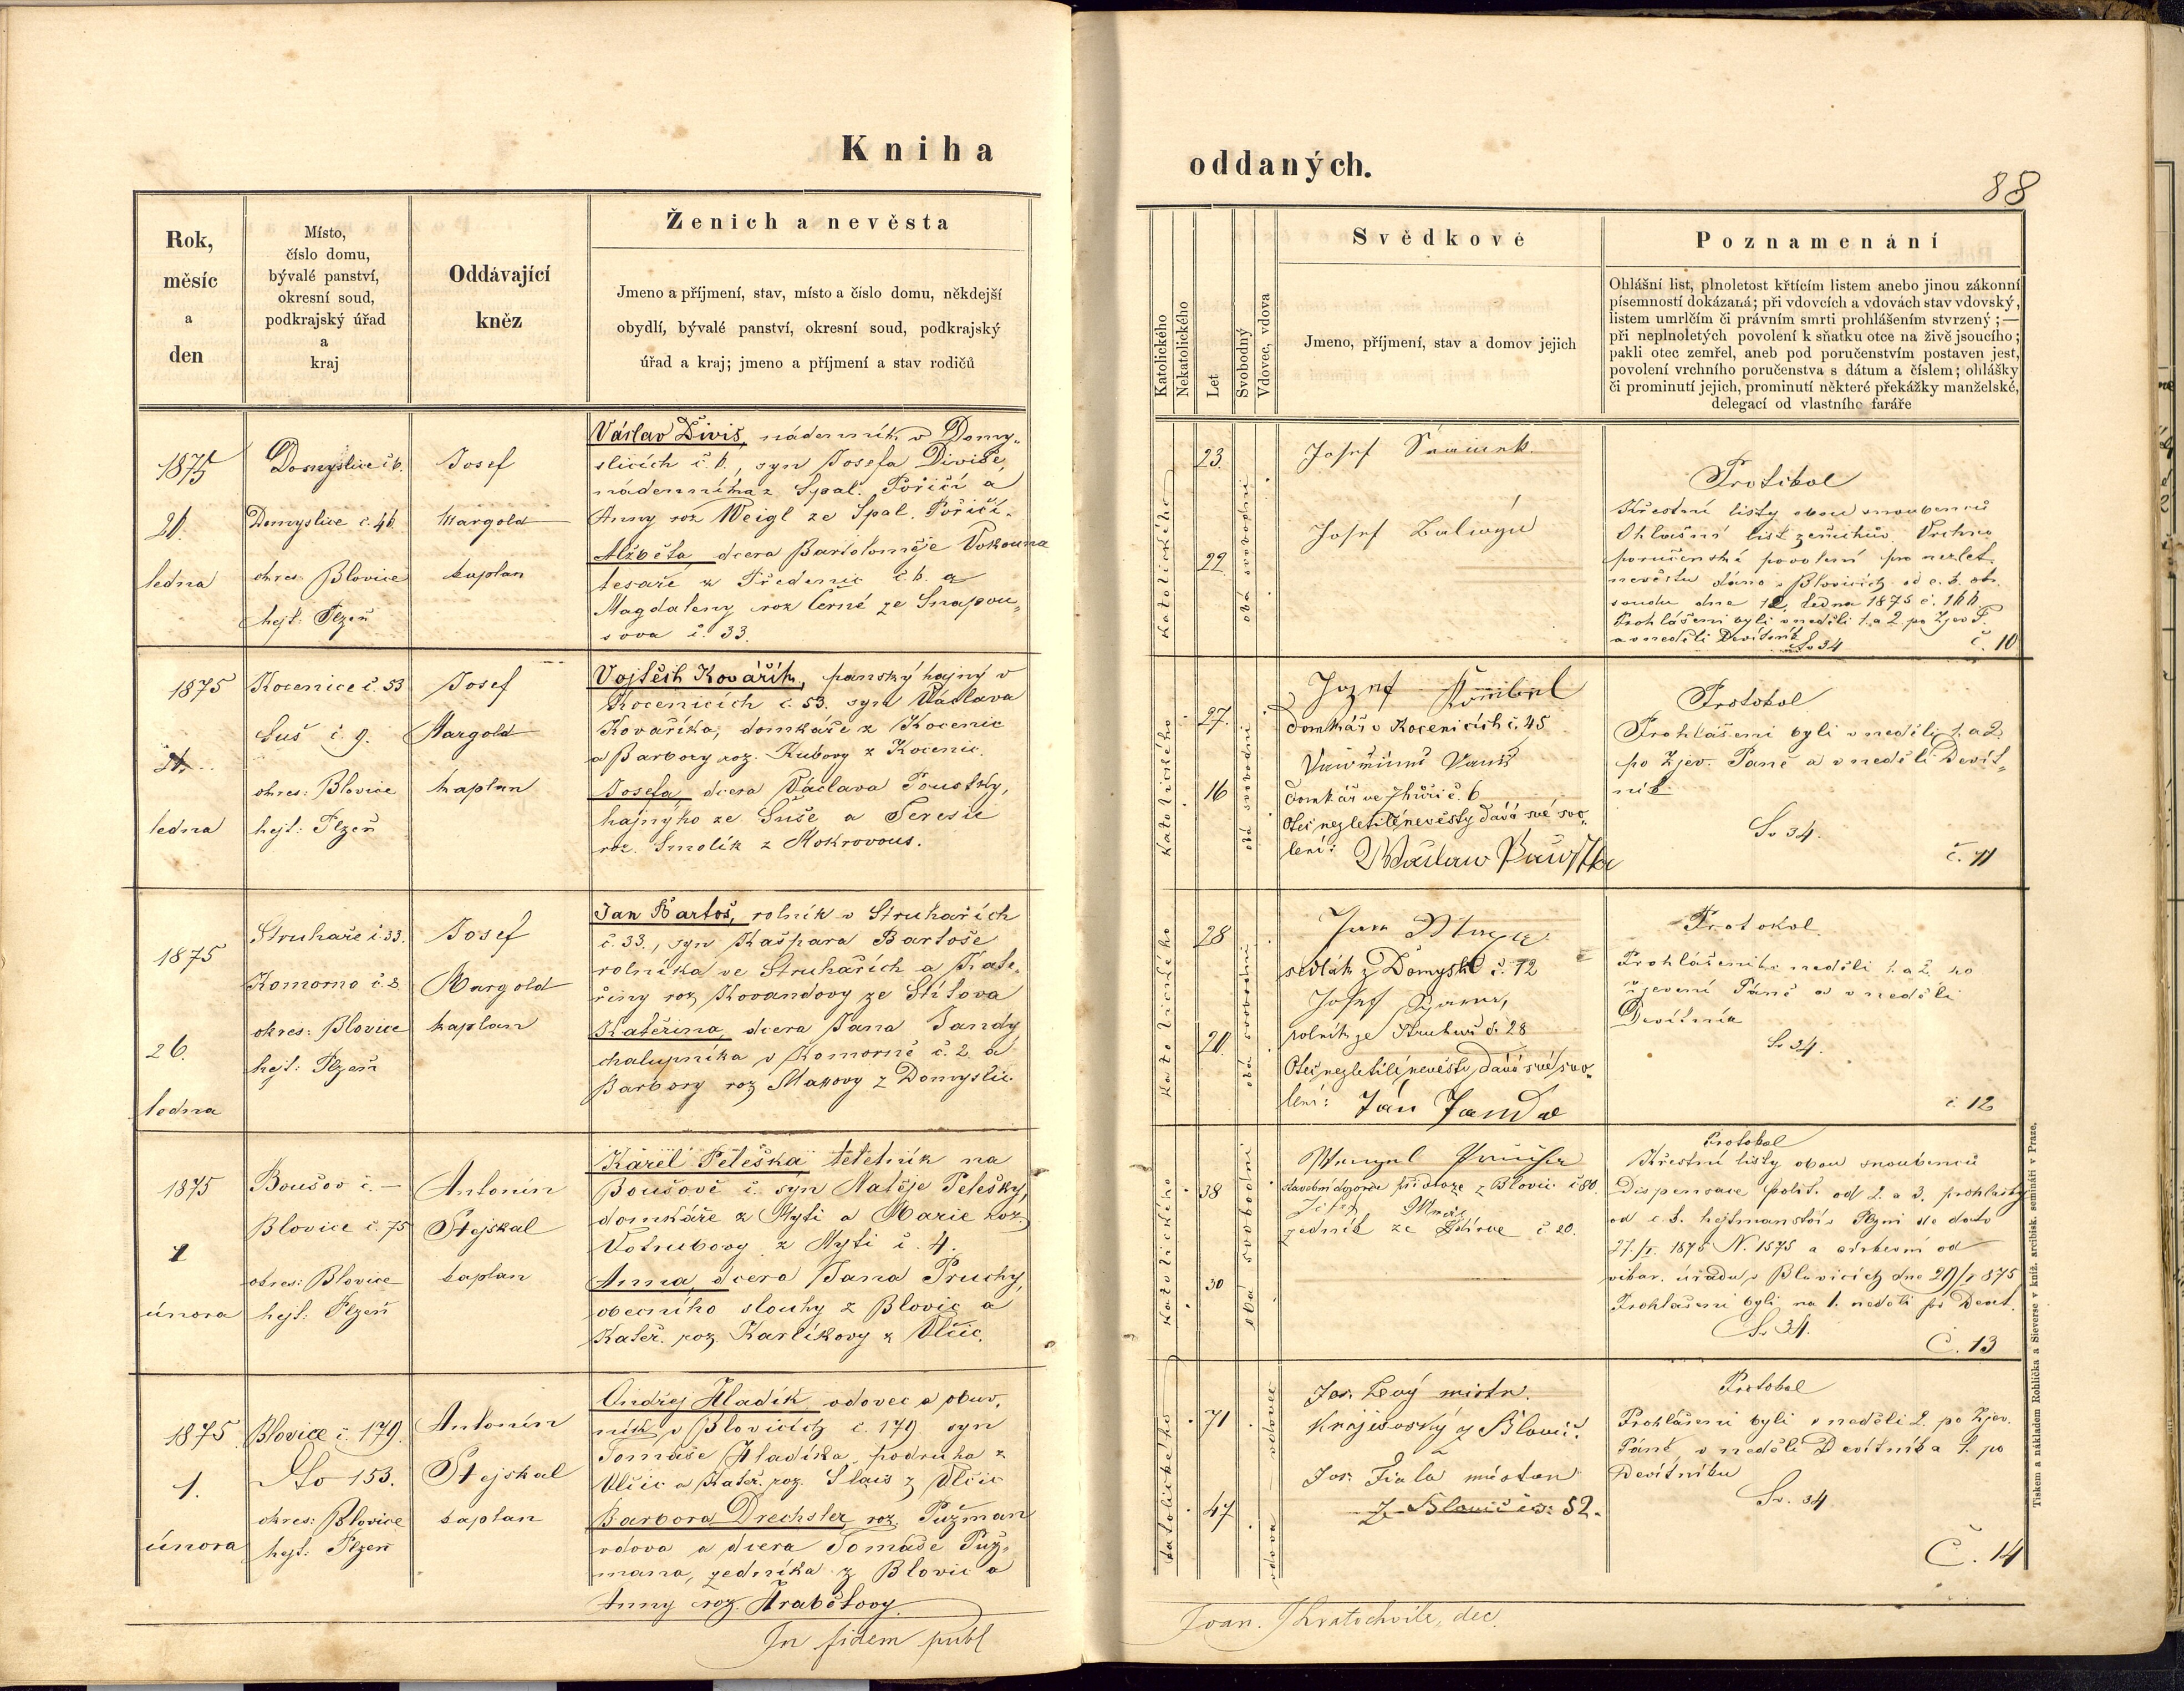 Kniha
oddaných.
88
Rok,
měsíc
a
den
Místo,
číslo domu,
bývalé panství,
okresní soud,
podkrajský úřad
a
kraj
Oddávající
kněz
Ženich a nevěsta
Jmeno a příjmení, stav, místo a číslo domu, někdejší
obydlí, bývalé panství, okresní soud, podkrajský
úřad a kraj; jmeno a příjmení a stav rodičů
Katolického
Nekatolického
Let
Svobodný
Vdovec, vdova
Svědkové
Jmeno, příjmení, stav a domov jejich
Poznamenání
Ohlášní list, plnoletost křticím listem anebo jinou zákonní
písemností dokázaná; při vdovcích a vdovách stav vdovský,
listem umrlčím či právním smrti prohlášením stvrzený; —
při neplnoletých povolení k sňatku otce na živě jsoucího;
pakli otec zemřel, aneb pod poručenstvím postaven jest,
povolení vrchního poručenstva s dátum a číslem; ohlášky
či prominutí jejich, prominutí některé překážky manželské,
delegací od vlastního faráře
1875
26.
ledna
Domyslice č 6.
Domyslice č. 46
okres: Blovice
hejt: Plzeň
Josef
Margold
kaplan
Václav Diviš, nádenník v Domy„
slicích č. 6., syn Josefa Diviše,
nádenníka z Spál. Poříčí a
Anny roz Weigl ze Spal. Poříčí.
Alžběta dcera Bartoloměje Vokouna
tesaře z Předenic č. 6. a
Magdaleny roz Černé ze Snapou„
sova č. 33.
katolického
23.
29.
oba svobodni
Josef
Josef
Protokol
Křestní listy obou snoubenců
Ohlašní list ženichův. Vrchno
poručenské povolení pro nezlet.
nevěstu dáno v Blovicích od c. k. okr.
soudu dne 12. ledna 1875 č. 166
Prohlášeni byli v neděli 1. a 2. po Zjev P.
a v neděli Devítník
Sv 34
č. 10
1875
ledna
Kocenice č. 53
Suš č. 9.
okres: Blovice
hejt: Plzeň
Josef
Margold
kaplan
Vojtěch Kovářík, panský hajný v
Kocenicích č. 53. syn Václava
Kovaříka, domkáře z Kocenic
a Barbory roz. Kubovy z Kocenic.
Josefa, dcera Václava Poustky,
hajnýho ze Suše a Teresie
roz. Smolík z Mokrovous.
katolického
27.
16
oba svobodni
Jozef
domkář v Kocenicích č. 45
domkář ve Zhůři č. 6
Otec nezletilé nevěsty dává své svo„
lení:
Protokol
Prohlášeni byli v neděli 1. a 2.
po Zjev. Páně a v neděli Devít„
ník
Sv 34.
č. 11
1875
26.
ledna
Struhaře č. 33.
Komorno č. 2
okres: Blovice
hejt: Plzeň
Josef
Margold
kaplan
Jan Bartoš, rolník v Struhařích
č. 33., syn Kašpara Bartoše
rolníka ve Struhařích a Kate„
řiny roz Kovandovy ze Štítova
Kateřina, dcera Jana Jandy
chalupníka v Komorně č. 2. a
Barbory roz Mašovy z Domyslic.
katolického
28
20.
oba svobodni
sedlák z Domysl č. 12
Josef
rolník ze Struhař č. 28
Otec nezletilé nevěsty dává své svo„
lení: Ján Janda
Protokol.
Prohlášeni neděli 1. a 2. po
zjevení Páně a v neděli
Devítníka
Sv 34.
č. 12
1875
1
února
Boušov č. —
Blovice č. 75
okres: Blovice
hejt: Plzeň
Antonín
Stejskal
kaplan
Karel Peteška tetetník na
Boušově č. syn Matěje Petešky,
domkáře z Mýti a Marie roz.
Votrubovy z Myti č. 4.
Anna, dcera Jana Pruchy,
obecního slouhy z Blovic a
Kateř. roz Karlíkovy z Vlčic.
katolického
38
30
oba svobodni
Wenzel
stavební dozorce při dráze z Blovic č 80.
zedník ze Ždírce č 20.
Protokol
Křestní listy obou snoubenců
Dispensace polit. od 2. a 3. prohlášky
od c. k. hejtmanství v Plzni de dato
27./I. 1875 N. 1575 a církevní od
vikar. úřadu v Blovicích dne 29/I 875
Prohlášeni byli na 1. neděli po Devít.
Sv 34.
Č. 13
1875.
1.
února
Blovice č. 179.
Dto 153.
okres: Blovice
hejt: Plzeň
Antonín
Stejskal
kaplan
Ondřej Hladík vdovec a obuv„
ník v Blovicích č. 179 syn
Tomáše Hladíka, podruha z
Vlčic a Kateř. roz. Slais z Vlčic
Barbora Drechsler, roz. Pužman
vdova a dcera Tomáše Puž„
mana, zedníka z Blovic a
Anny roz. Hrabětovy.
katolického
71
47
vdovec
vdova
Jos. Levý mistr
Krejčovský z Blovic.
Jos: Fiala měšťan
z Blovic čis: 52.
Protokol
Prohlášeni byli v neděli 2. po Zjev.
Páně, v neděli Devítníka 1. po
Devítníku
Sv. 34
Č. 14
In fidem publ
Joan. Kratochvíle, dec.
Tiskem a nákladem Rohlíčka a Sieverse v kníž. arcibisk. semináři v Praze.